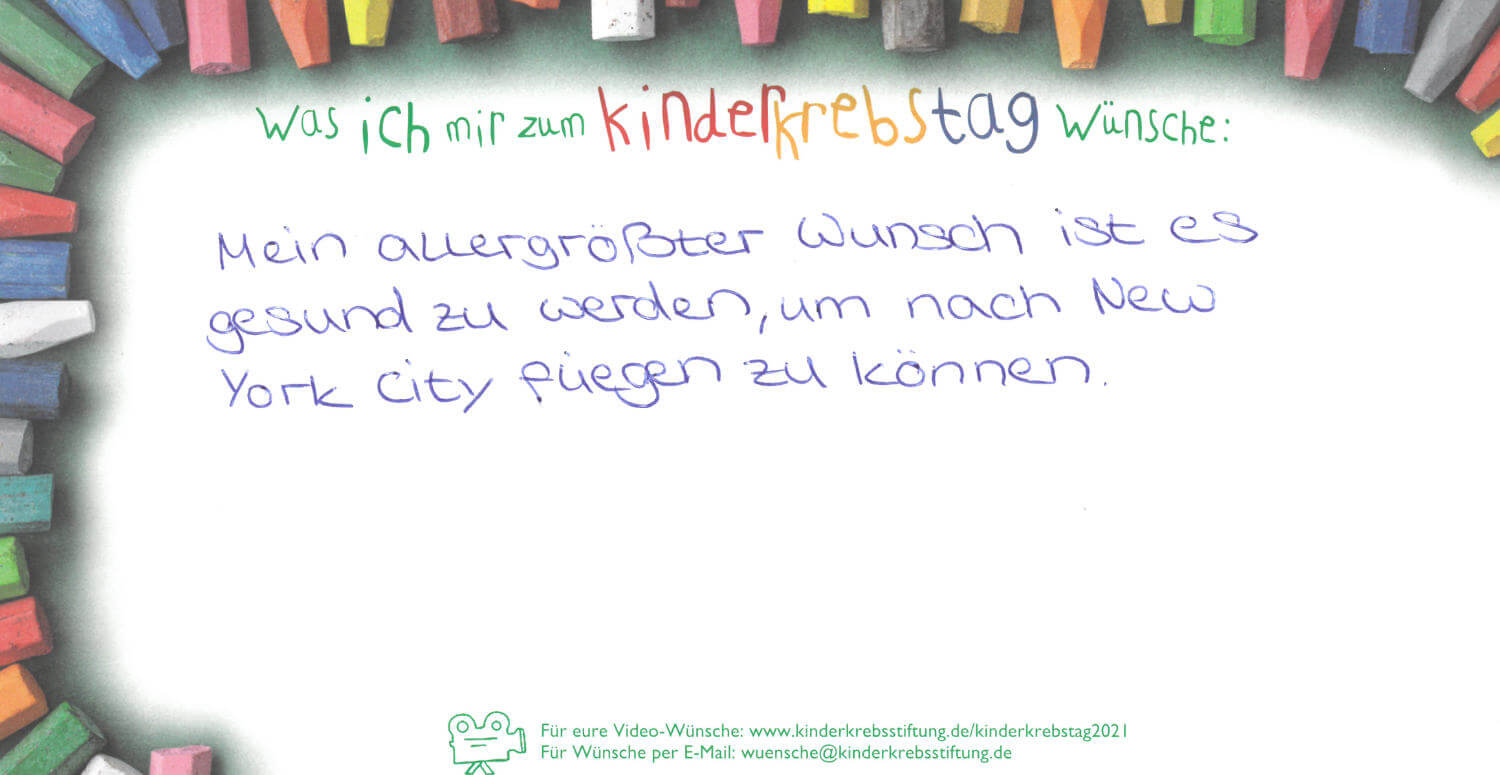 Was ich mir zum kinderkrebstag wünsche:
Mein allergrößter Wunsch ist es
gesund zu werden, um nach New
York City fliegen zu können.
Für eure Video-Wünsche: www.kinderkrebsstiftung.de/kinderkrebstag2021
Für Wünsche per E-Mail: wuensche@kinderkrebsstiftung.de